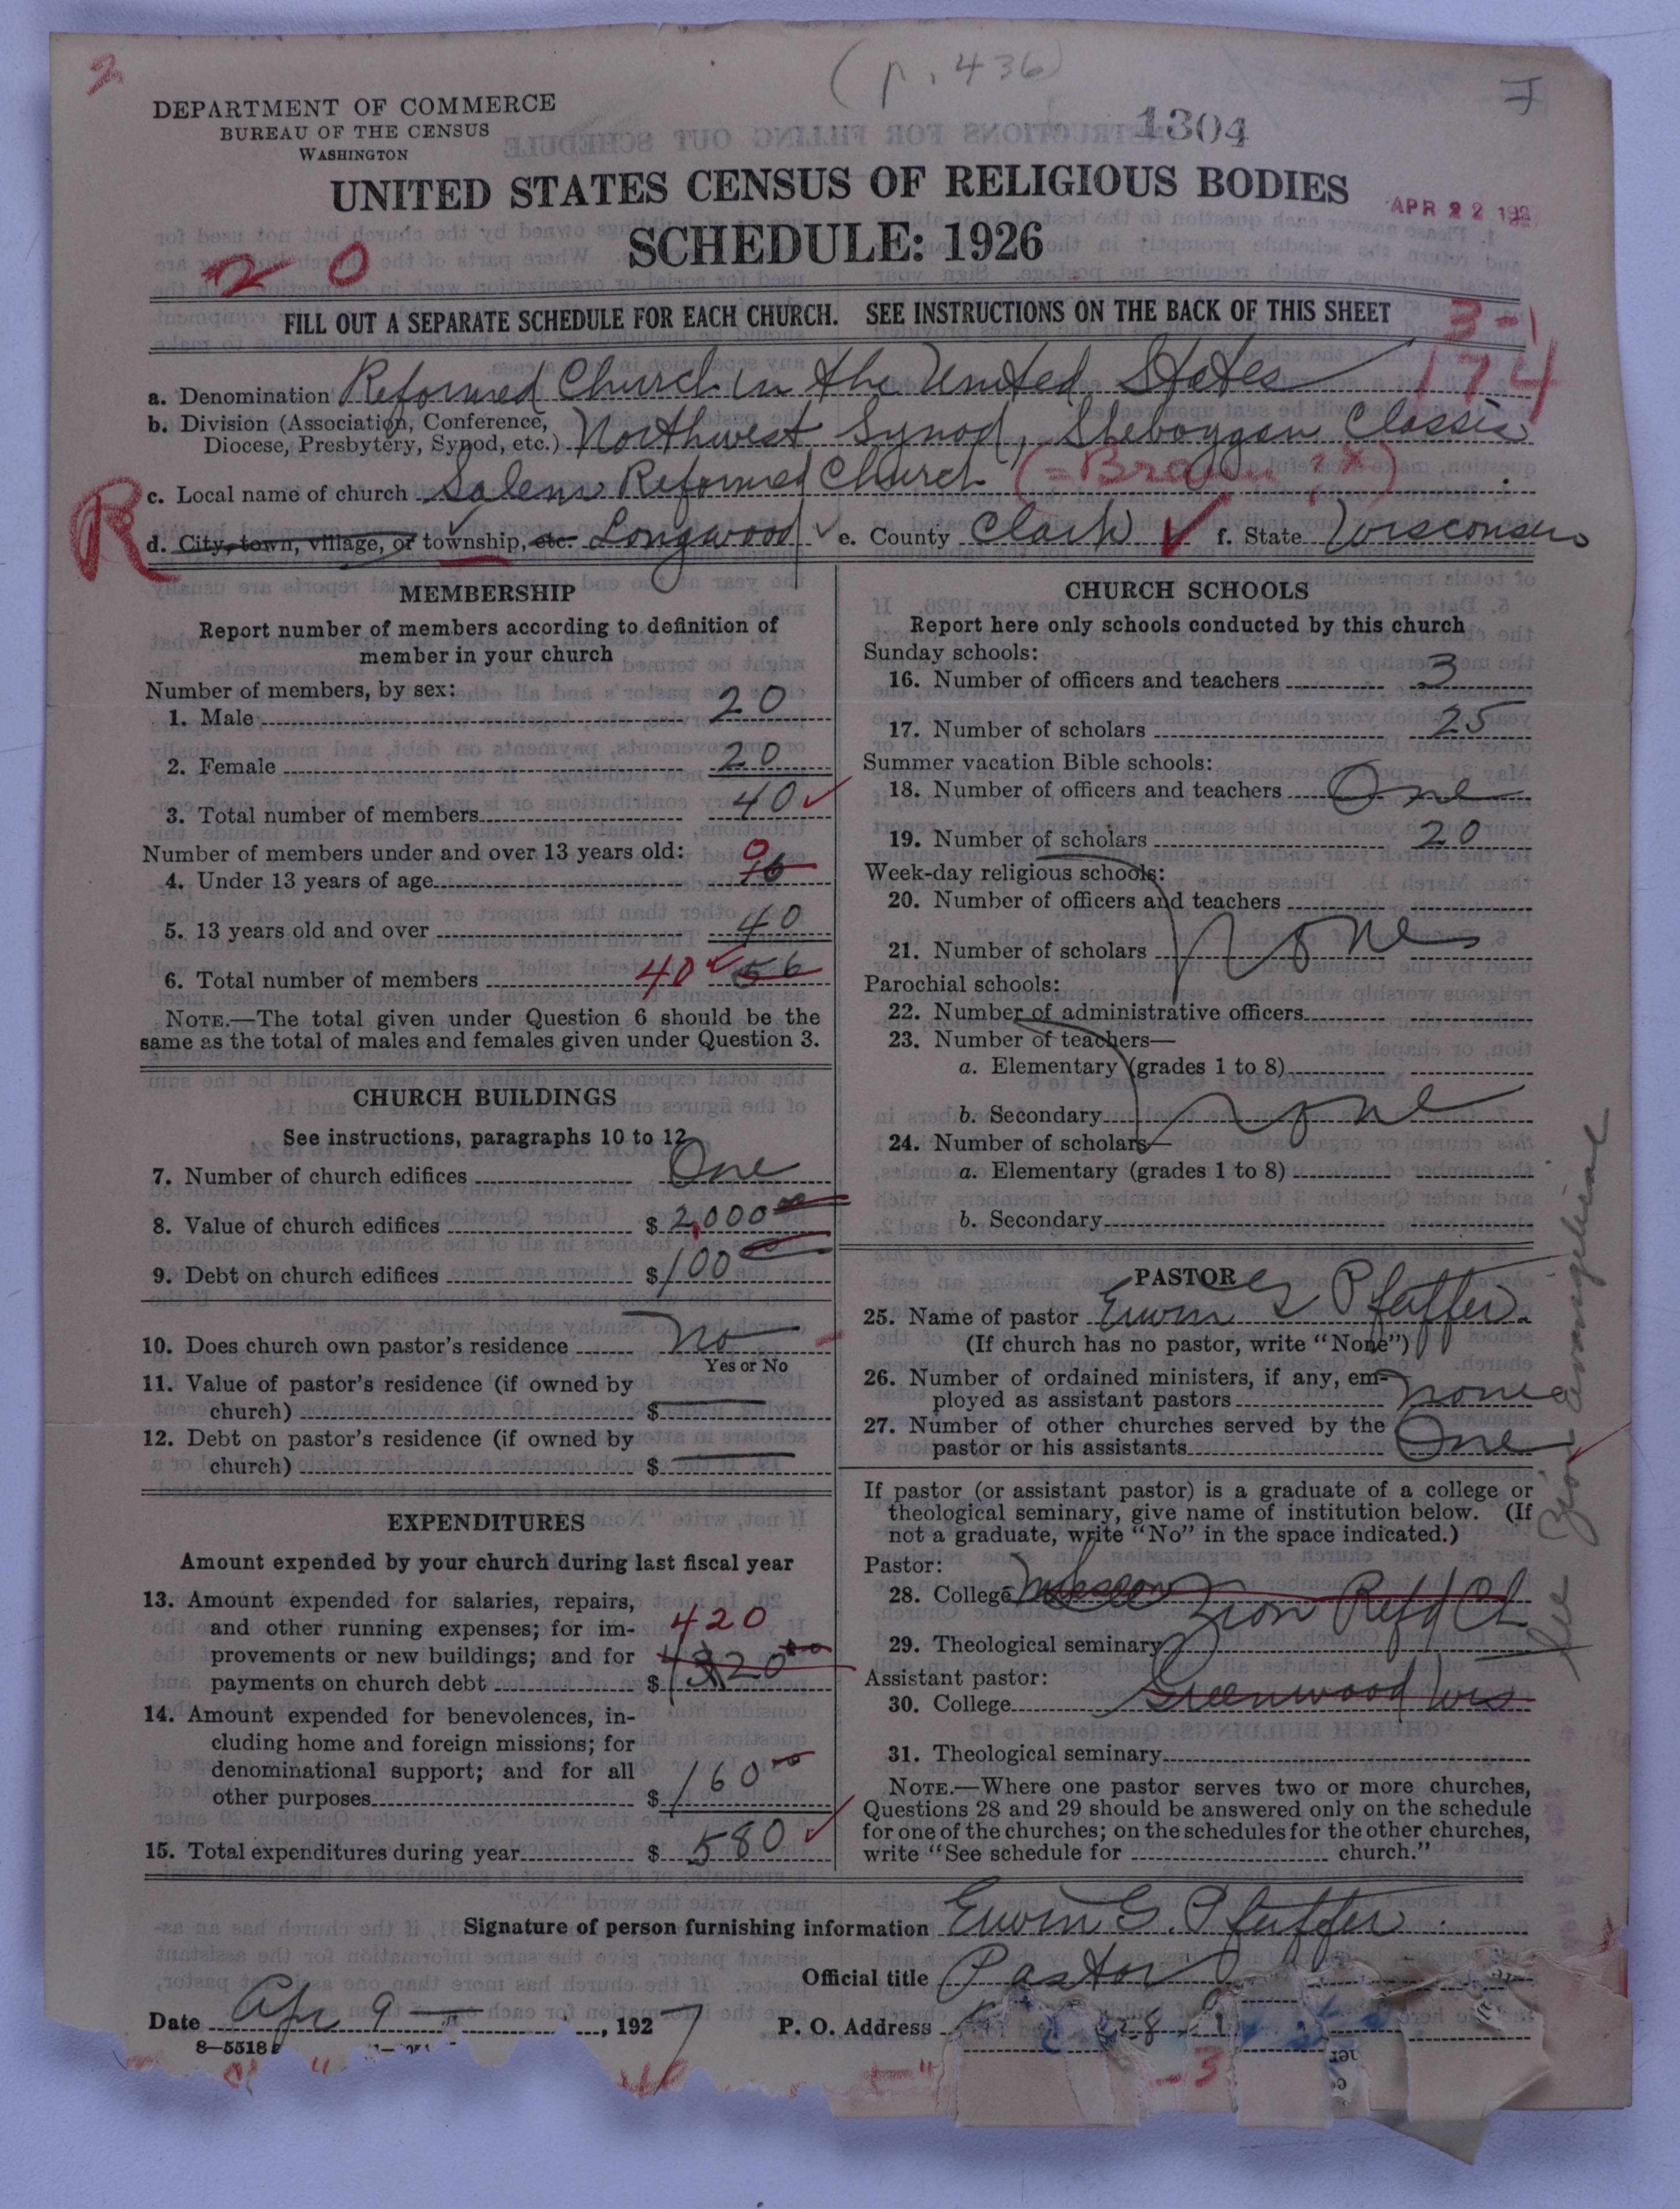 2
(p. 436)
DEPARTMENT OF COMMERCE
BUREAU OF THE CENSUS
WASHINGTON
1304
UNITED STATES CENSUS OF RELIGIOUS BODIES
APR 22 192
SCHEDULE: 1926
20
FILL OUT A SEPARATE SCHEDULE FOR EACH CHURCH. SEE INSTRUCTIONS ON THE BACK OF THIS SHEET
3-1
174
a. Denomination Reformed Church in the United States
b. Division (Association, Conference, Diocese, Presbytery, Synod, etc.) Northwest Synod, Sheboygan Classis
c. Local name of church Salem Reformed Church
R
d. City, town, village, or township, etc. Longwood e. County Clark f. State Wisconsin
MEMBERSHIP
Report number of members according to definition of
member in your church
Number of members, by sex:
1. Male 20
2. Female 20
3. Total number of members 40
Number of members under and over 13 years old:
4. Under 13 years of age 16 0
5. 13 years old and over 40
6. Total number of members 40 56
NOTE.—The total given under Question 6 should be the
same as the total of males and females given under Question 3.
CHURCH BUILDINGS
See instructions, paragraphs 10 to 12
7. Number of church edifices One
8. Value of church edifices $ 2,000 00
9. Debt on church edifices $ 100 00
10. Does church own pastor's residence No
Yes or No
11. Value of pastor's residence (if owned by
church) $
12. Debt on pastor's residence (if owned by
church) $
EXPENDITURES
Amount expended by your church during last fiscal year
13. Amount expended for salaries, repairs,
and other running expenses; for im-
420
provements or new buildings; and for
payments on church debt $
14. Amount expended for benevolences, in-
cluding home and foreign missions; for
denominational support; and for all
other purposes $ 160 00
15. Total expenditures during year $ 580
CHURCH SCHOOLS
Report here only schools conducted by this church
Sunday schools:
16. Number of officers and teachers 3
17. Number of scholars 25
Summer vacation Bible schools:
18. Number of officers and teachers One
19. Number of scholars 20
Week-day religious schools:
20. Number of officers and teachers
21. Number of scholars None
Parochial schools:
22. Number of administrative officers
23. Number of teachers—
a. Elementary (grades 1 to 8)
b. Secondary None
24. Number of scholars—
a. Elementary (grades 1 to 8)
b. Secondary
PASTOR
25. Name of pastor Erwin G Pfeiffer
(If church has no pastor, write "None")
26. Number of ordained ministers, if any, em-
ployed as assistant pastors none
27. Number of other churches served by the
pastor or his assistants One
If pastor (or assistant pastor) is a graduate of a college or
theological seminary, give name of institution below. (If
not a graduate, write "No" in the space indicated.)
Pastor:
28. College Mission
Zion Refd Ch
29. Theological seminary
Assistant pastor:
30. College Greenwood Wis
31. Theological seminary
NOTE.—Where one pastor serves two or more churches,
Questions 28 and 29 should be answered only on the schedule
for one of the churches; on the schedules for the other churches,
write "See schedule for church."
See Zion Evangelical
Signature of person furnishing information Erwin G. Pfeiffer
Official title Pastor
Date Apr 9, 1927
P. O. Address
8—5518
-3